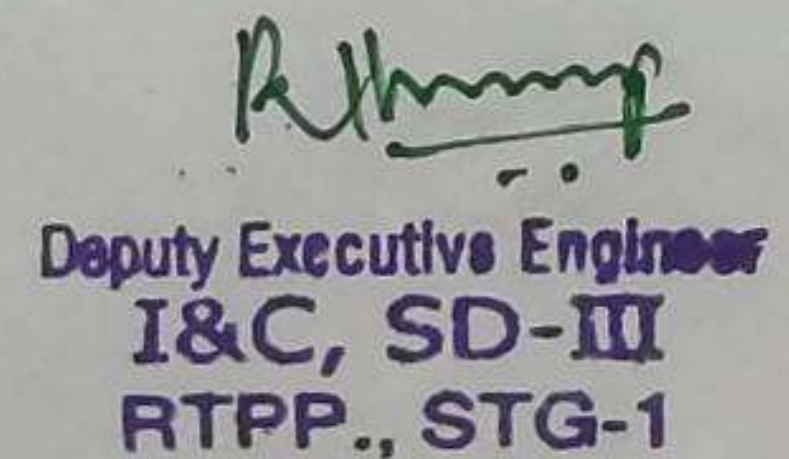 Deputy Executive Engineer
I&C, SD-III
RTPP., STG-1